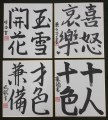 喜怒
哀樂
玉雪
開花
十人
十色
才色
兼備